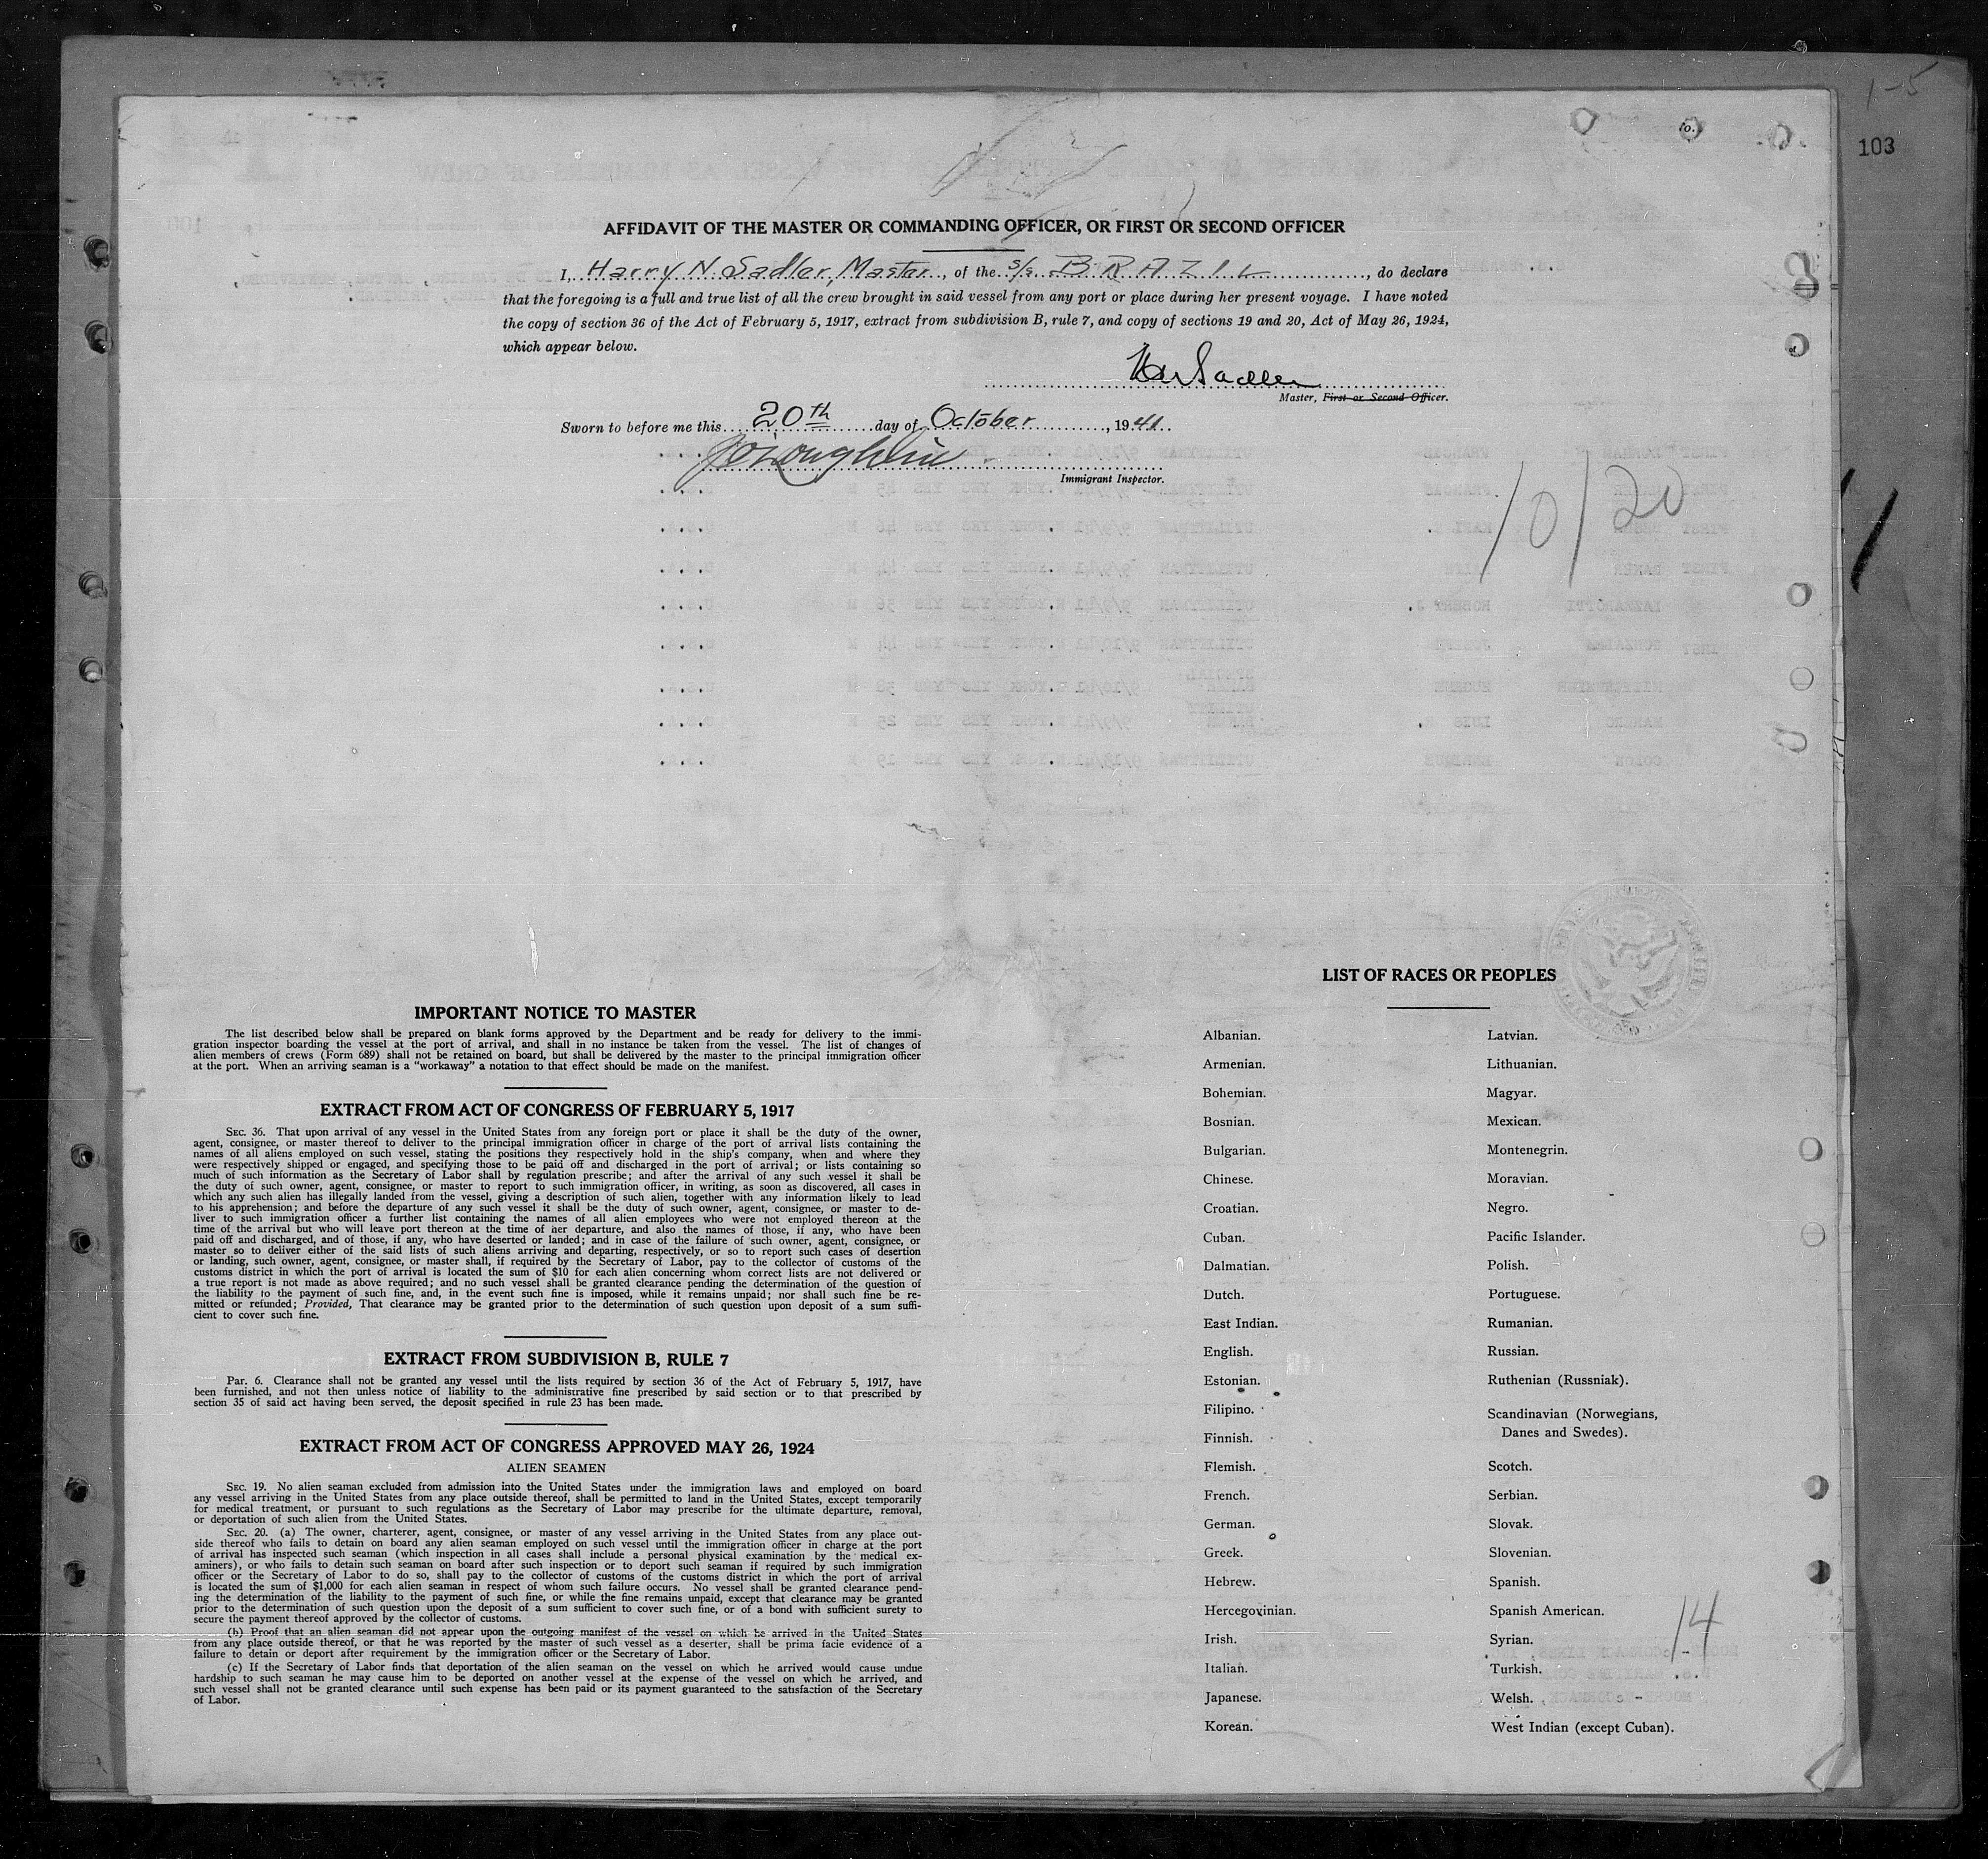 1-5
103
AFFIDAVIT OF THE MASTER OR COMMANDING OFFICER, OR FIRST OR SECOND OFFICER
I, Harry N. Sadler, Master, of the s/s BRAZIL, do declare
that the foregoing is a full and true list of all the crew brought in said vessel from any port or place during her present voyage. I have noted
the copy of section 36 of the Act of February 5, 1917, extract from subdivision B, rule 7, and copy of sections 19 and 20, Act of May 26, 1924,
which appear below.
HN Sadler
Master, First or Second Officer.
Sworn to before me this 20th day of October, 1941.
Immigrant Inspector.
10/20
IMPORTANT NOTICE TO MASTER
The list described below shall be prepared on blank forms approved by the Department and be ready for delivery to the immi-
gration inspector boarding the vessel at the port of arrival, and shall in no instance be taken from the vessel. The list of changes of
alien members of crews (Form 689) shall not be retained on board, but shall be delivered by the master to the principal immigration officer
at the port. When an arriving seaman is a "workaway" a notation to that effect should be made on the manifest.
EXTRACT FROM ACT OF CONGRESS OF FEBRUARY 5, 1917
SEC. 36. That upon arrival of any vessel in the United States from any foreign port or place it shall be the duty of the owner,
agent, consignee, or master thereof to deliver to the principal immigration officer in charge of the port of arrival lists containing the
names of all aliens employed on such vessel, stating the positions they respectively hold in the ship's company, when and where they
were respectively shipped or engaged, and specifying those to be paid off and discharged in the port of arrival; or lists containing so
much of such information as the Secretary of Labor shall by regulation prescribe; and after the arrival of any such vessel it shall be
the duty of such owner, agent, consignee, or master to report to such immigration officer, in writing, as soon as discovered, all cases in
which any such alien has illegally landed from the vessel, giving a description of such alien, together with any information likely to lead
to his apprehension; and before the departure of any such vessel it shall be the duty of such owner, agent, consignee, or master to de-
liver to such immigration officer a further list containing the names of all alien employees who were not employed thereon at the
time of the arrival but who will leave port thereon at the time of her departure, and also the names of those, if any, who have been
paid off and discharged, and of those, if any, who have deserted or landed; and in case of the failure of such owner, agent, consignee, or
master so to deliver either of the said lists of such aliens arriving and departing, respectively, or so to report such cases of desertion
or landing, such owner, agent, consignee, or master shall, if required by the Secretary of Labor, pay to the collector of customs of the
customs district in which the port of arrival is located the sum of $10 for each alien concerning whom correct lists are not delivered or
a true report is not made as above required; and no such vessel shall be granted clearance pending the determination of the question of
the liability to the payment of such fine, and, in the event such fine is imposed, while it remains unpaid; nor shall such fine be re-
mitted or refunded; Provided, That clearance may be granted prior to the determination of such question upon deposit of a sum suffi-
cient to cover such fine.
EXTRACT FROM SUBDIVISION B, RULE 7
Par. 6. Clearance shall not be granted any vessel until the lists required by section 36 of the Act of February 5, 1917, have
been furnished, and not then unless notice of liability to the administrative fine prescribed by said section or to that prescribed by
section 35 of said act having been served, the deposit specified in rule 23 has been made.
EXTRACT FROM ACT OF CONGRESS APPROVED MAY 26, 1924
ALIEN SEAMEN
SEC. 19. No alien seaman excluded from admission into the United States under the immigration laws and employed on board
any vessel arriving in the United States from any place outside thereof, shall be permitted to land in the United States, except temporarily
for medical treatment, or pursuant to such regulations as the Secretary of Labor may prescribe for the ultimate departure, removal,
or deportation of such alien from the United States.
SEC. 20. (a) The owner, charterer, agent, consignee, or master of any vessel arriving in the United States from any place out-
side thereof who fails to detain on board any alien seaman employed on such vessel until the immigration officer in charge at the port
of arrival has inspected such seaman (which inspection in all cases shall include a personal physical examination by the medical ex-
aminers), or who fails to detain such seaman on board after such inspection or to deport such seaman if required by such immigration
officer or the Secretary of Labor to do so, shall pay to the collector of customs of the customs district in which the port of arrival
is located the sum of $1,000 for each alien seaman in respect of whom such failure occurs. No vessel shall be granted clearance pend-
ing the determination of the liability to the payment of such fine, or while the fine remains unpaid, except that clearance may be granted
prior to the determination of such question upon the deposit of a sum sufficient to cover such fine, or of a bond with sufficient surety to
secure the payment thereof approved by the collector of customs.
(b) Proof that an alien seaman did not appear upon the outgoing manifest of the vessel on which he arrived in the United States
from any place outside thereof, or that he was reported by the master of such vessel as a deserter, shall be prima facie evidence of a
failure to detain or deport after requirement by the immigration officer or the Secretary of Labor.
(c) If the Secretary of Labor finds that deportation of the alien seaman on the vessel on which he arrived would cause undue
hardship to such seaman he may cause him to be deported on another vessel at the expense of the vessel on which he arrived, and
such vessel shall not be granted clearance until such expense has been paid or its payment guaranteed to the satisfaction of the Secretary
of Labor.
LIST OF RACES OR PEOPLES
Albanian.
Armenian.
Bohemian.
Bosnian.
Bulgarian.
Chinese.
Croatian.
Cuban.
Dalmatian.
Dutch.
East Indian.
English.
Estonian.
Filipino.
Finnish.
Flemish.
French.
German.
Greek.
Hebrew.
Hercegovinian.
Irish.
Italian.
Japanese.
Korean.
Latvian.
Lithuanian.
Magyar.
Mexican.
Montenegrin.
Moravian.
Negro.
Pacific Islander.
Polish.
Portuguese.
Rumanian.
Russian.
Ruthenian (Russniak).
Scandinavian (Norwegians,
Danes and Swedes).
Scotch.
Serbian.
Slovak.
Slovenian.
Spanish.
Spanish American.
Syrian.
Turkish.
Welsh.
West Indian (except Cuban).
14